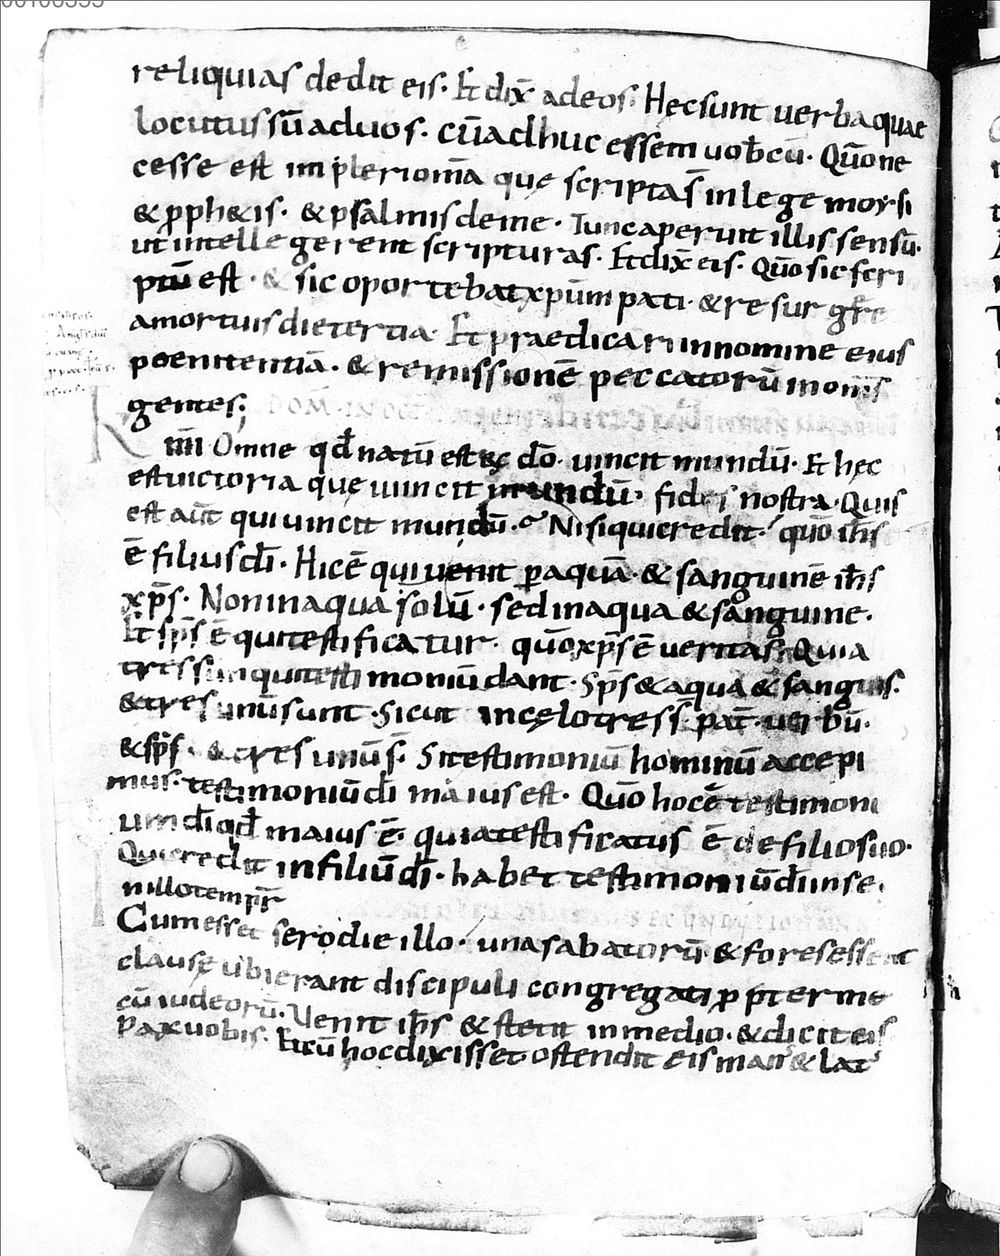 reliquias dedit eis. Et dix̄ ad eos. Hęc sunt uerba quae
locutus sū ad uos. cū adhuc essem uob̄cū. Qūo ne
cesse est impleri om̄a quę scripta s̄ in lege moysi
& p̄ph&is. & psalmis de me. Tunc aperuit illis sensū.
ut intellegerent scripturas. Et dix̄ eis. Qūo sic scri
ptū est. & sic oportebat xp̄um pati. & resurgere
a mortuis die tertia. Et praedicari in nomine eius
poenitentiā. & remissionē peccatorū in om̄s
gentes;
IIII Omne qd̄ natū est ex dō. uincit mundū. Et hęc
est uictoria quę uincit mundū. fides nostra. Quis
est aūt qui uincit mundū. Nisi qui credit. qūo ih̄s
ē filius dī. Hic ē qui uenit p aquā. & sanguinē ih̄s
xp̄s. Non in aqua solū. sed in aqua & sanguine.
Et sp̄s ē qui testificatur. qūo xp̄s ē ueritas. Quia
tres sunt qui testimoniū dant. Sp̄s & aqua & sanguis.
& tres unū sunt. Sicut in cęlo tres s̄. pat̄. uerbū.
& sp̄s. & tres unū s̄. Si testimoniū hominū accepi
mus. testimoniū dī maius est. Qūo hoc ē testimoni
um dī qd̄ maius ē. quia testificatus ē de filio suo.
Qui credit in filiū dī. habet testimoniū dī in se.
In illo tempr̄
Cum esset sero die illo. una sabatorū. & fores essent
clausę ubi erant discipuli congregati p̄pter me
cū iudeorū. Uenit ih̄s & stetit in medio. & dicit eis
Pax uobis. Et cū hoc dixisset ostendit eis man' & lat'